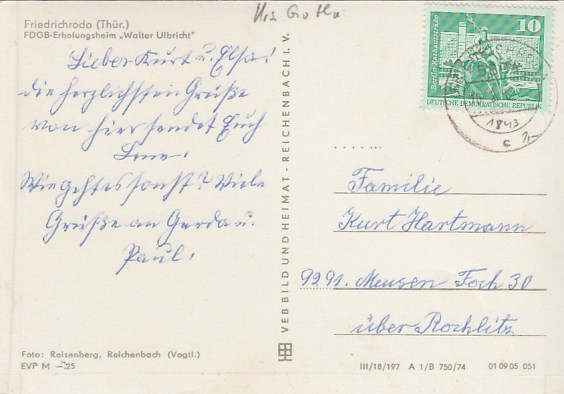 Friedrichroda (Thür.)
FDGB-Erholungsheim „Walter Ulbricht"
Krs Gotha
Lieber Kurt u. Elsa!
die herzlichsten Grüße
von hier sendet Euch
Lene.
Wie geht es sonst? Viele
Grüße an Gerda u.
Paul.
VEB BILD UND HEIMAT - REICHENBACH I. V.
10
DEUTSCHE DEMOKRATISCHE REPUBLIK
1843
c
Familie
Kurt Hartmann
9291. Meusen Foch 30
über Rochlitz
Foto: Reisenberg, Reichenbach (Vogtl.)
EVP M –.25
III/18/197 A 1/B 750/74 01 09 05 051